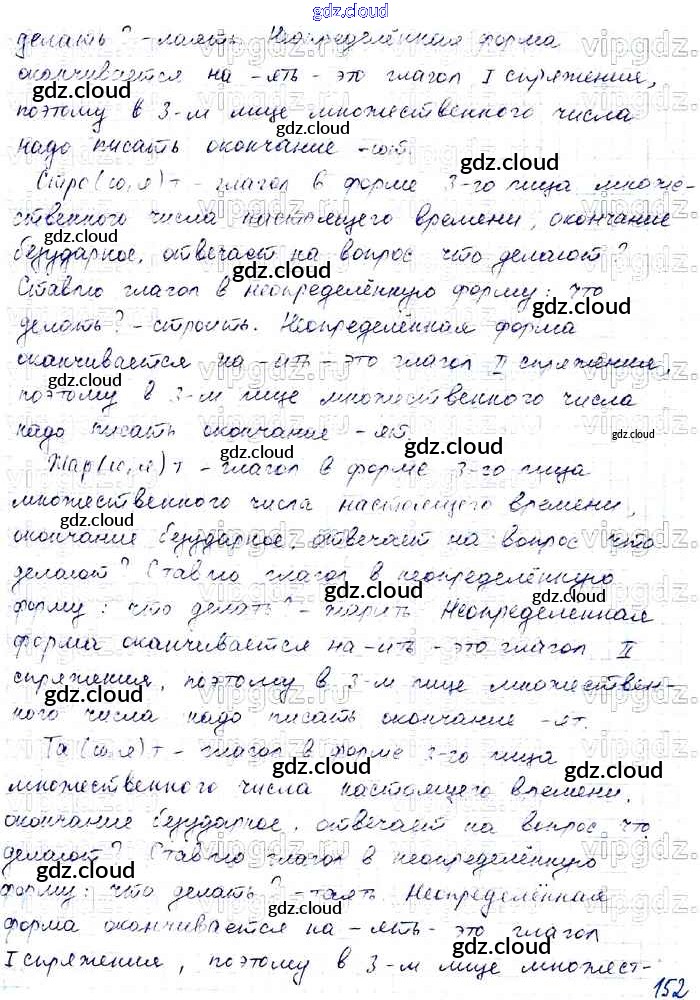 gdz.cloud
делать? - лаять. Неопределённая форма
оканчивается на -ять - это глагол I спряжения,
поэтому в 3-м лице множественного числа
надо писать окончание -ют.
Стро(ю,я)т - глагол в форме 3-го лица множе-
ственного числа настоящего времени, окончание
безударное, отвечает на вопрос что делают?
Ставлю глагол в неопределённую форму: что
делать? - строить. Неопределённая форма
оканчивается на -ить - это глагол II спряжения,
поэтому в 3-м лице множественного числа
надо писать окончание -ят.
Жар(ю,я)т - глагол в форме 3-го лица
множественного числа настоящего времени,
окончание безударное, отвечает на вопрос что
делают? Ставлю глагол в неопределённую
форму: что делать? - жарить. Неопределённая
форма оканчивается на -ить - это глагол II
спряжения, поэтому в 3-м лице множествен-
ного числа надо писать окончание -ят.
Та(ю,я)т - глагол в форме 3-го лица
множественного числа настоящего времени,
окончание безударное, отвечает на вопрос что
делают? Ставлю глагол в неопределённую
форму: что делать? - таять. Неопределённая
форма оканчивается на -ять - это глагол
I спряжения, поэтому в 3-м лице множест-
152